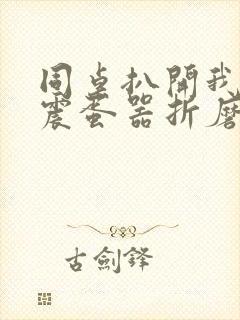 同卓扒開我
震蛋器折磨
古劍鋒